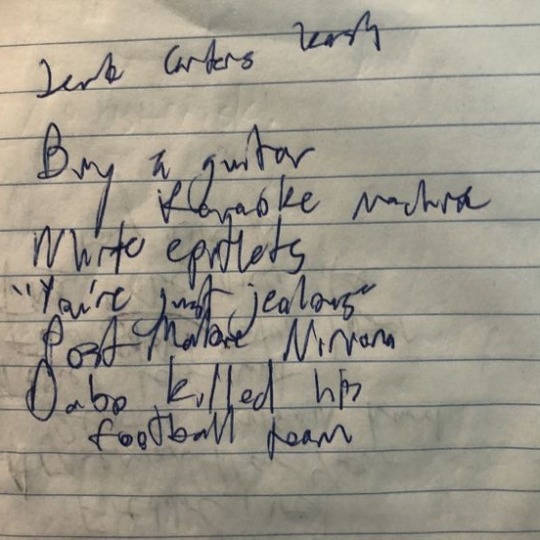 Buy a guitar
Karaoke machine
White epithets
"You're just jealous"
Post Malone Nirvana
Dabo killed his
football team